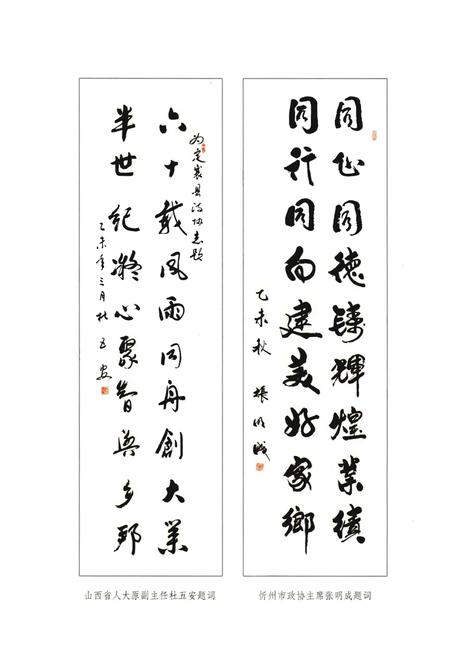 为定襄县政协志题
六十载风雨同舟創大業
半世纪凝心聚智兴乡邦
乙未年三月杜五安
同心同德铸輝煌業績
同行同向建美好家鄉
乙未秋 張明成
山西省人大原副主任杜五安题词
忻州市政协主席张明成题词